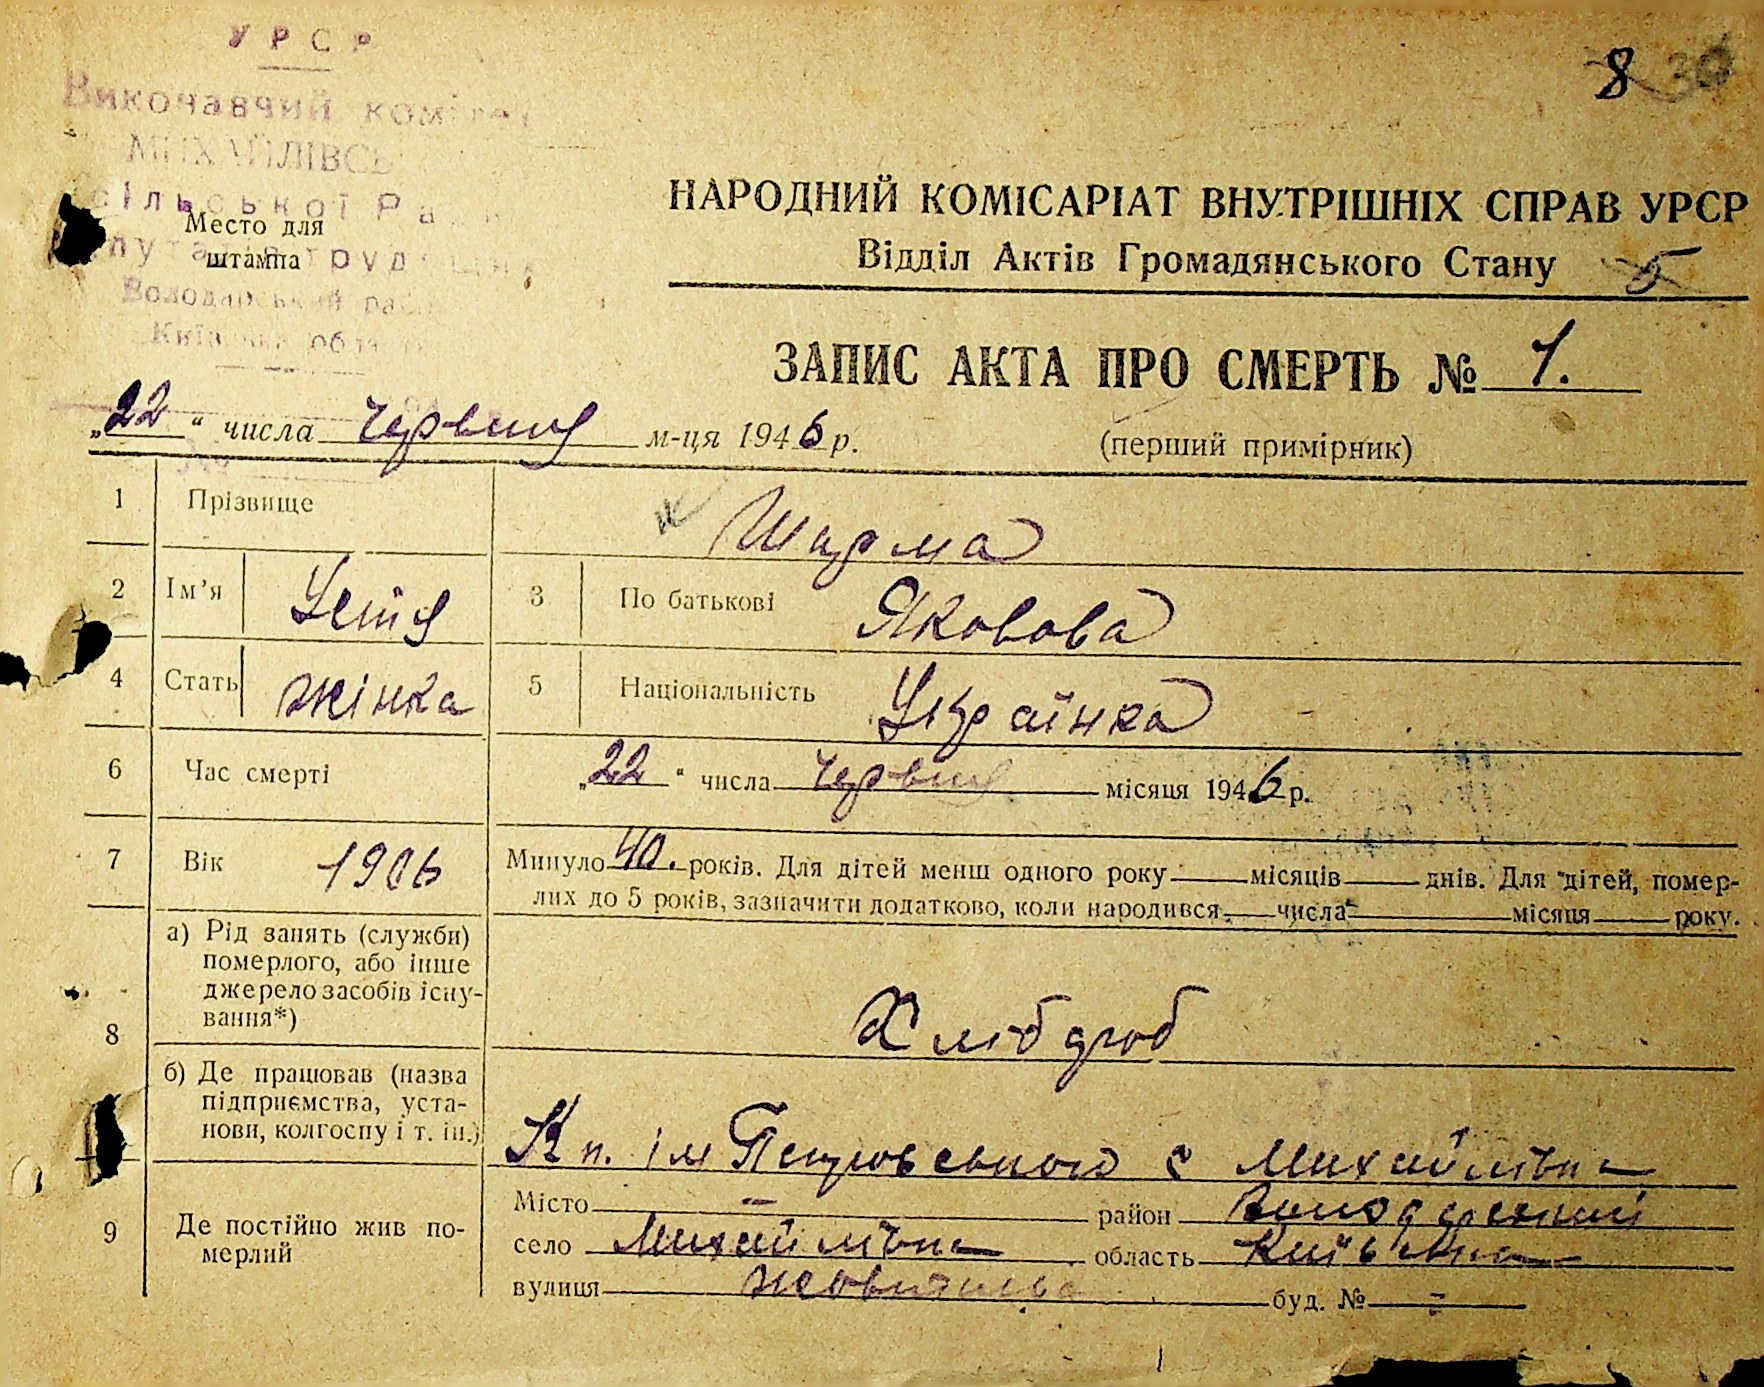 УРСР
Виконавчий комітет
МИХАЙЛІВСЬ
сільської Ради
Володарський
8 30
Место для
штампа
НАРОДНИЙ КОМІСАРІАТ ВНУТРІШНІХ СПРАВ УРСР
Відділ Актів Громадянського Стану 5
ЗАПИС АКТА ПРО СМЕРТЬ № 1.
„22“ числа червня м-ця 1946 р.
(перший примірник)
1 Прізвище Шарма
2 Ім'я Устя 3 По батькові Яковова
4 Стать жінка 5 Національність Українка
6 Час смерті „22“ числа червня місяця 1946 р.
7 Вік 1906 Минуло 40. років. Для дітей менш одного року місяців днів. Для дітей, помер-
лих до 5 років, зазначити додатково, коли народився числа місяця року.
8 а) Рід занять (служби)
померлого, або інше
джерело засобів існу-
вання*)
Хлібороб
б) Де працював (назва
підприємства, уста-
нови, колгоспу і т. ін.)
Кп. ім Петровського с Михайлівка
9 Де постійно жив по-
мерлий
Місто — район Володарський
село Михайлівка область Київська
вулиця буд. № —